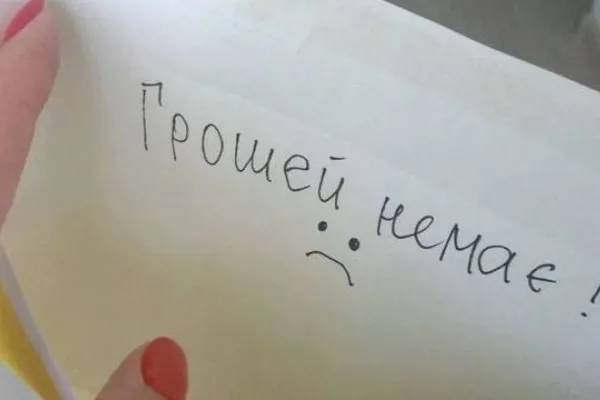 Грошей немає!